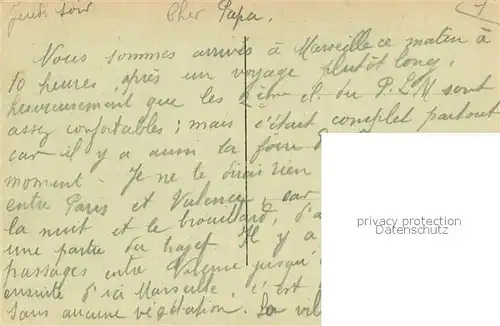 Jeudi soir Cher Papa, 1
Nous sommes arrivés à Marseille ce matin à
10 heures après un voyage plutôt long,
heureusement que les 2ème cl. du P.L.M sont
assez confortables ; mais c'était complet partout
car il y a aussi la foire
moment. Je ne te dirais rien
entre Paris et Valence, car
la nuit et le brouillard, d'a
une partie du trajet. Il y a
passages entre Valence jusqu'
ensuite d'ici Marseille, c'est
sans aucune végétation. La vil
privacy protection
Datenschutz